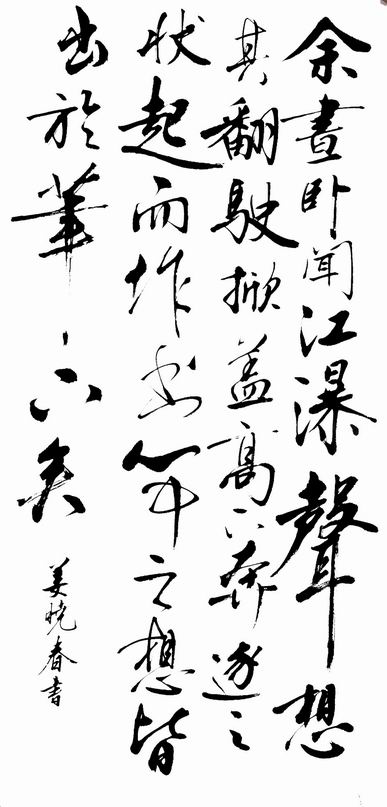 余晝卧聞江瀑聲想
其翻駛掀盖高下奔逐之
状起而作書心中之想皆
出於筆下矣
姜曉春書